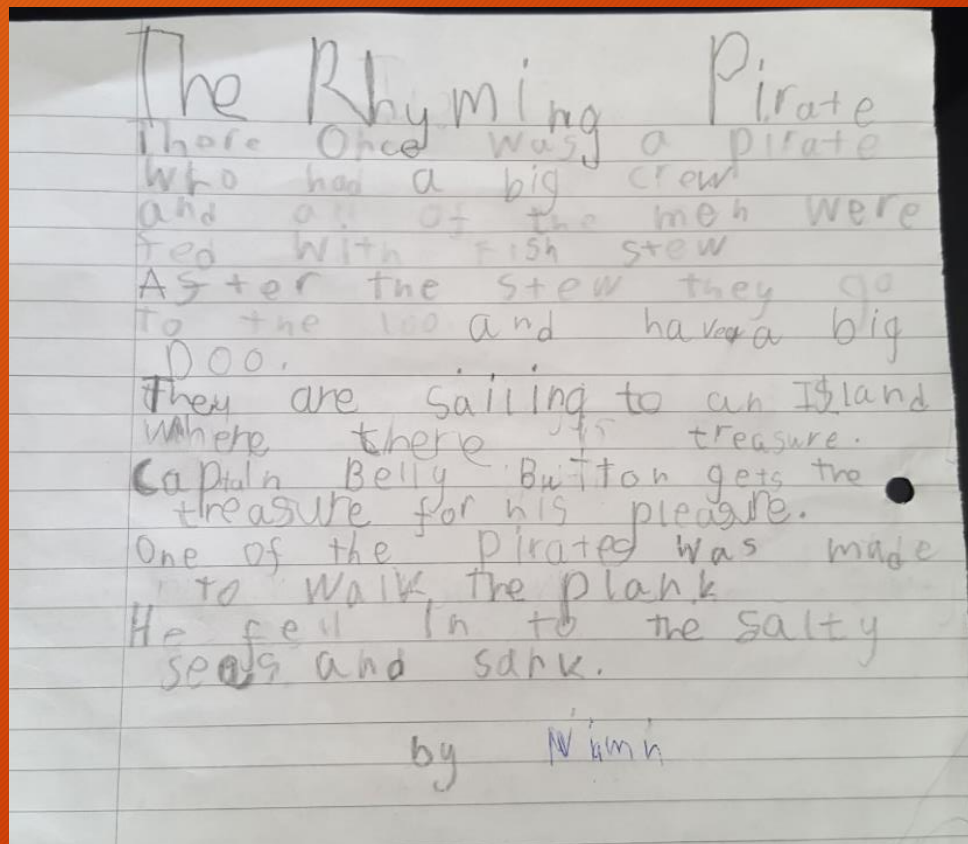 The Rhyming Pirate
There Once was a pirate
who had a big crew
and all of the men were
fed with fish stew
After the stew they go
to the loo and have a big
Doo.
They are sailing to an Island
Where there is treasure.
Captain Belly Button gets the
treasure for his pleasure.
One of the pirated was made
to walk the plank
He fell in to the salty
seas and sank.
by